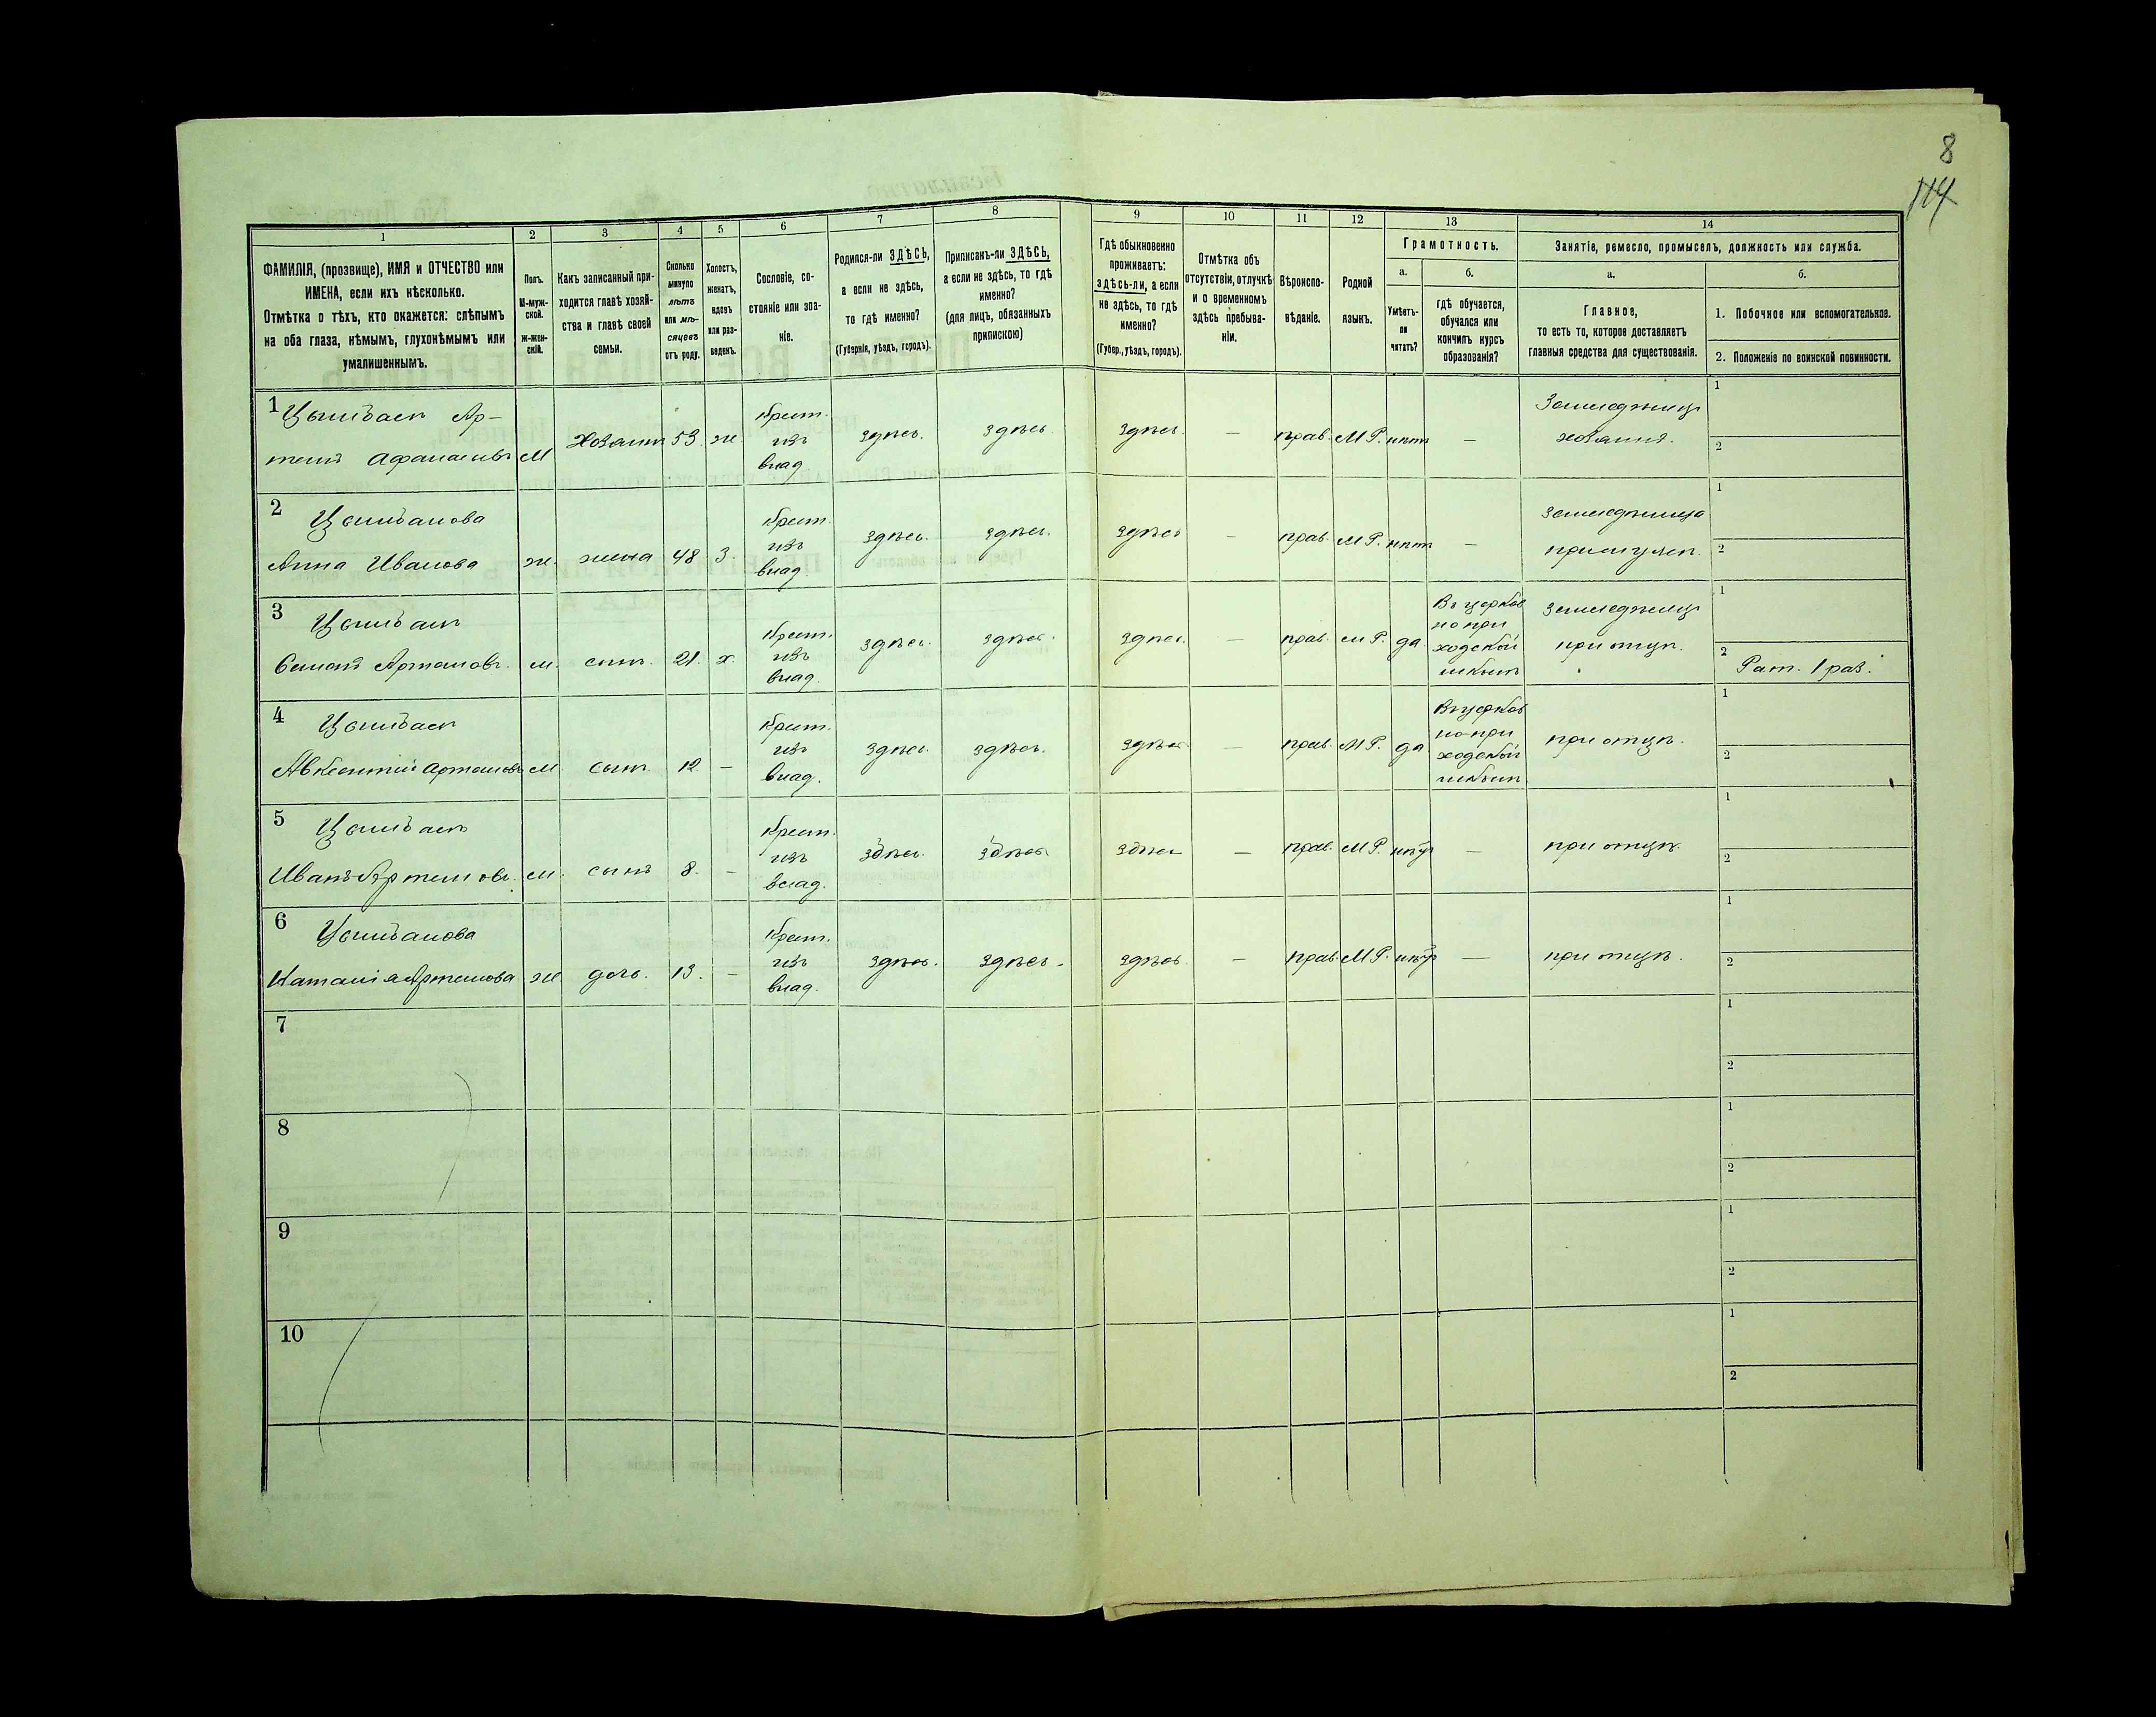 8
114
1
2
3
4
5
6
7
8
9
10
11
12
13
14
ФАМИЛІЯ, (прозвище), ИМЯ и ОТЧЕСТВО или
ИМЕНА, если ихъ нѣсколько.
Отмѣтка о тѣхъ, кто окажется: слѣпымъ
на оба глаза, нѣмымъ, глухонѣмымъ или
умалишеннымъ.
Полъ.
М-муж-
ской.
ж-жен-
скій.
Какъ записанный при-
ходится главѣ хозяй-
ства и главѣ своей
семьи.
Сколько
минуло
лѣтъ
или мѣ-
сяцевъ
отъ роду.
Холостъ,
женатъ,
вдовъ
или раз-
веденъ.
Сословіе, со-
стояніе или зва-
ніе.
Родился-ли ЗДѢСЬ,
а если не здѣсь,
то гдѣ именно?
(Губернія, уѣздъ, городъ).
Приписанъ-ли ЗДѢСЬ,
а если не здѣсь, то гдѣ
именно?
(для лицъ, обязанныхъ
припискою)
Гдѣ обыкновенно
проживаетъ:
здѣсь-ли, а если
не здѣсь, то гдѣ
именно?
(Губер., уѣздъ, городъ).
Отмѣтка объ
отсутствіи, отлучкѣ
и о временномъ
здѣсь пребыва-
ніи.
Вѣроиспо-
вѣданіе.
Родной
языкъ.
Грамотность.
а.
Умѣетъ-
ли
читать?
б.
гдѣ обучается,
обучался или
кончилъ курсъ
образованія?
Занятіе, ремесло, промыселъ, должность или служба.
а.
Главное,
то есть то, которое доставляетъ
главныя средства для существованія.
б.
1. Побочное или вспомогательное.
2. Положеніе по воинской повинности.
1
Ар-
темъ Афанасьевъ
М
Хозяинъ
53
ж.
Крест.
изъ
влад.
здѣсь.
здѣсь
здѣсь.
—
прав.
М Р.
нѣтъ
—
Земледѣлецъ
хозяинъ.
1
2
2
Анна Иванова
ж.
жена
48
З.
Крест.
изъ
влад.
здѣсь.
здѣсь.
здѣсь
—
прав.
М Р.
нѣтъ
—
земледѣлица
при мужѣ.
1
2
3
Семенъ Артемовъ.
м.
сынъ.
21.
х.
Крест.
изъ
влад.
здѣсь.
здѣсь.
здѣсь.
—
прав.
М Р.
да
Въ церков
но при
ходской
школѣ
земледѣлецъ
при отцѣ.
1
2
Рат. 1 раз.
4
Авксентій Артемовъ
М
сынъ.
12
—
Крест.
изъ
влад.
здѣсь.
здѣсь.
здѣсь
—
прав.
М Р.
да
Въ церков
но-при
ходской
школѣ
при отцѣ.
1
2
5
Иванъ Артемовъ.
м.
сынъ
8.
—
Крест.
изъ
влад.
здѣсь.
здѣсь
здѣсь
—
прав.
М Р.
—
при отцѣ.
1
2
6
Наталія Артемова
ж.
дочь.
13.
—
Крест.
изъ
влад.
здѣсь.
здѣсь.
здѣсь
—
прав.
М Р.
—
при отцѣ.
1
2
7
1
2
8
1
2
9
1
2
10
1
2